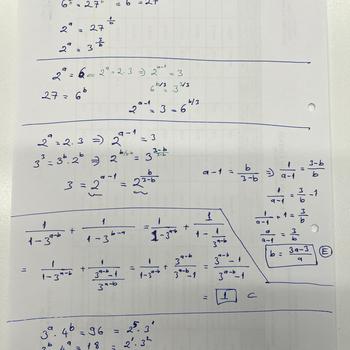 6ᵇ = 27
2ᵃ = 27^(1/b)
2ᵃ = 3^(3/b)
2ᵃ = 6 ⇔ 2ᵃ = 2·3 ⇒ 2^(a-1) = 3
27 = 6ᵇ
6^(b/3) = 3^(3/3)
2^(a-1) = 3 = 6^(b/3)
2ᵃ = 2·3 ⇒ 2^(a-1) = 3
3³ = 3ᵇ·2ᵇ ⇒ 2ᵇ = 3^(3-b)
3 = 2^(a-1) = 2^(b/(3-b))
a-1 = b/(3-b) ⇒ 1/(a-1) = (3-b)/b
1/(a-1) = 3/b - 1
1/(a-1) + 1 = 3/b
a/(a-1) = 3/b
b = (3a-3)/a (E)
1/(1-3^(a-b)) + 1/(1-3^(b-a)) = 1/(1-3^(a-b)) + 1/(1 - 1/3^(a-b))
= 1/(1-3^(a-b)) + 1/((3^(a-b)-1)/3^(a-b)) = 1/(1-3^(a-b)) + 3^(a-b)/(3^(a-b)-1) = (3^(a-b)-1)/(3^(a-b)-1)
= 1 C
3ᵃ·4ᵇ = 96 = 2⁵·3¹
3ᵇ·4ᵃ = 18 = 2¹·3²